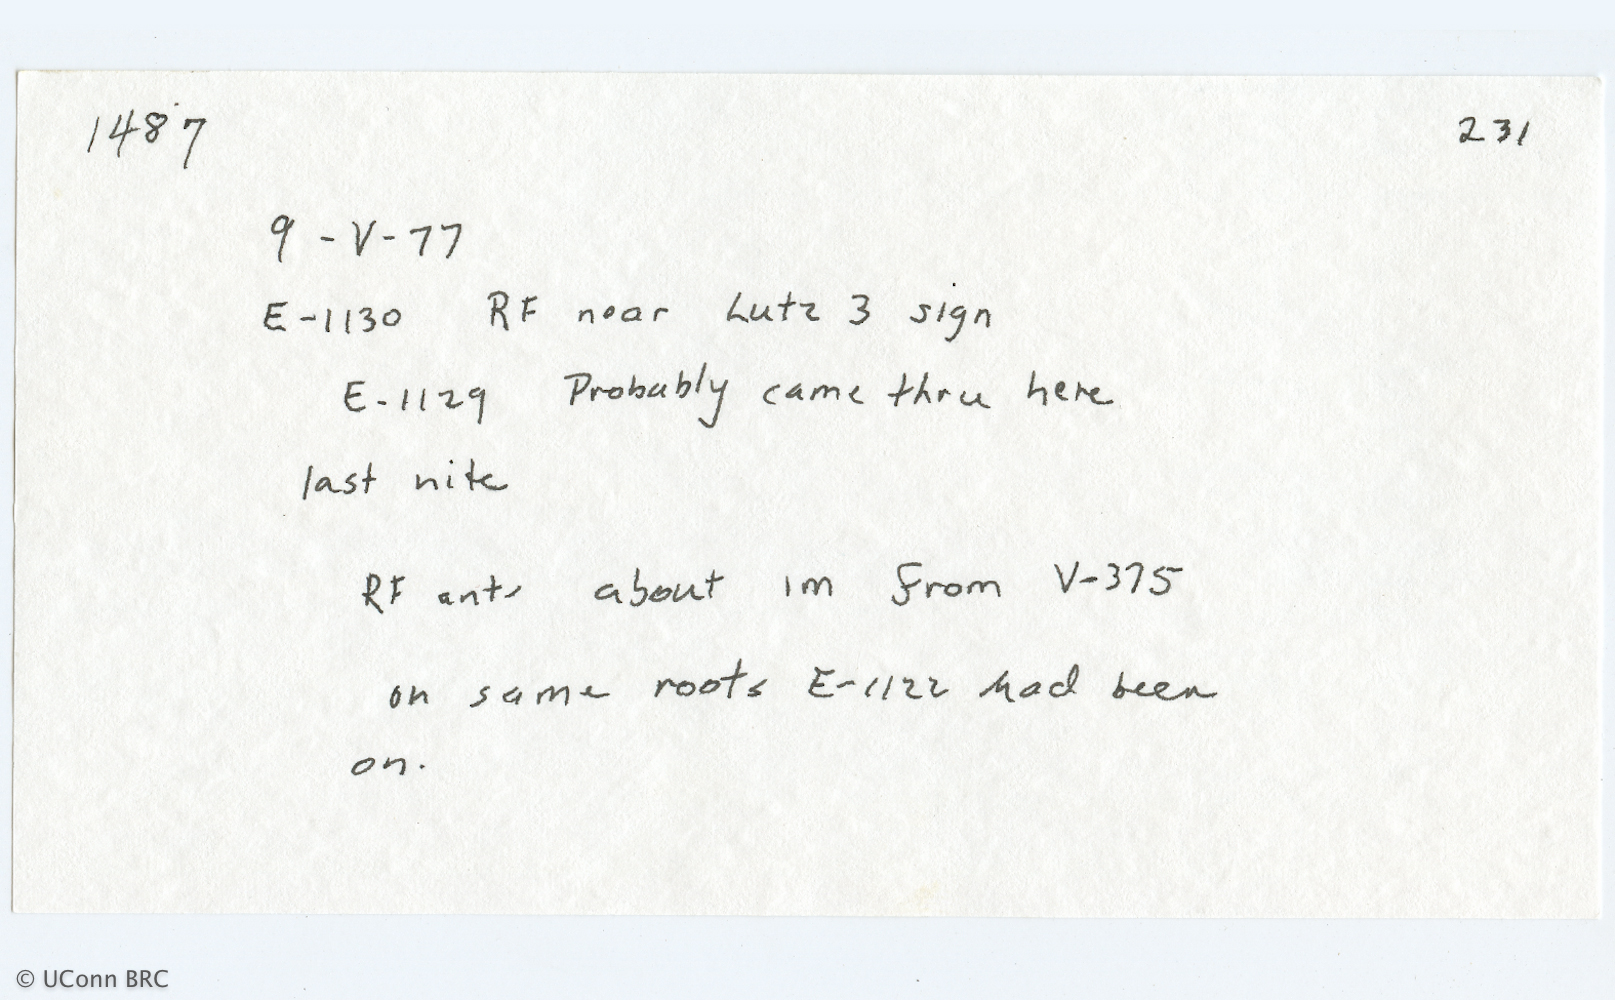 1487 231
9-V-77
E-1130 RF near Lutz 3 sign
E-1129 Probably came thru here
last nite
RF ants about 1m from V-375
on same roots E-1122 had been
on.
© UConn BRC